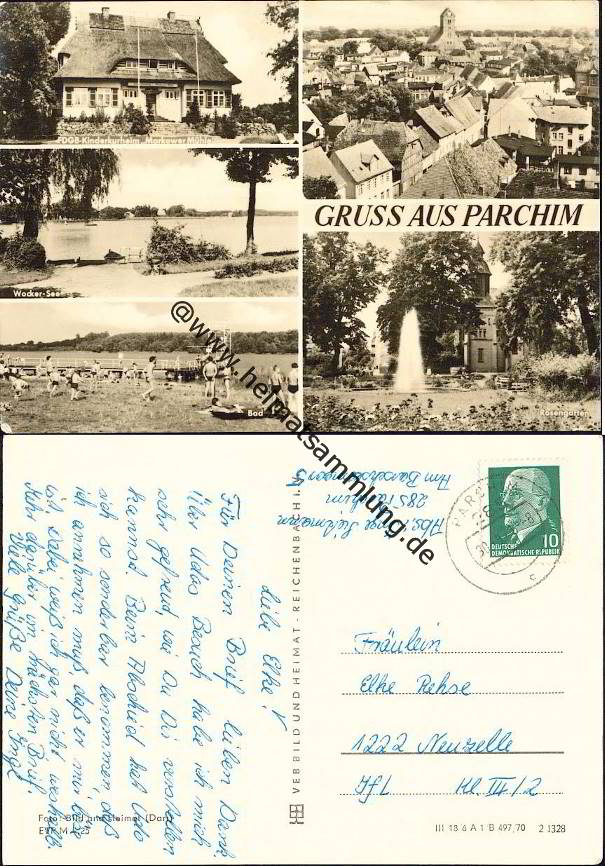 FDGB-Kinderkurheim „Markower Mühle"
Wocker-See
Bad
GRUSS AUS PARCHIM
Rosengarten
@www.heimatsammlung.de
Abs. Inge
285 Parchim
Liebe Elke!
Für Deinen Brief lieben Dank
Über Udos Besuch habe ich mich
sehr gefreut, wie Du Dir vorstellen
kannst. Beim Abschied hat Udo
sich so sonderbar benommen, daß
ich annehmen muß, daß er mir böse
ist. Dabei weiß ich gar nicht weshalb.
Mehr darüber im nächsten Brief.
Viele Grüße Deine Inge
VEB BILD UND HEIMAT · REICHENBACH I. V.
Foto: Bild und Heimat
EVP M 0,25
DEUTSCHE
DEMOKRATISCHE REPUBLIK
10
Fräulein
Elke Rehse
1222 Neuzelle
IfL Kl. III/2
III 18 6 A 1 B 497/70 2 1328